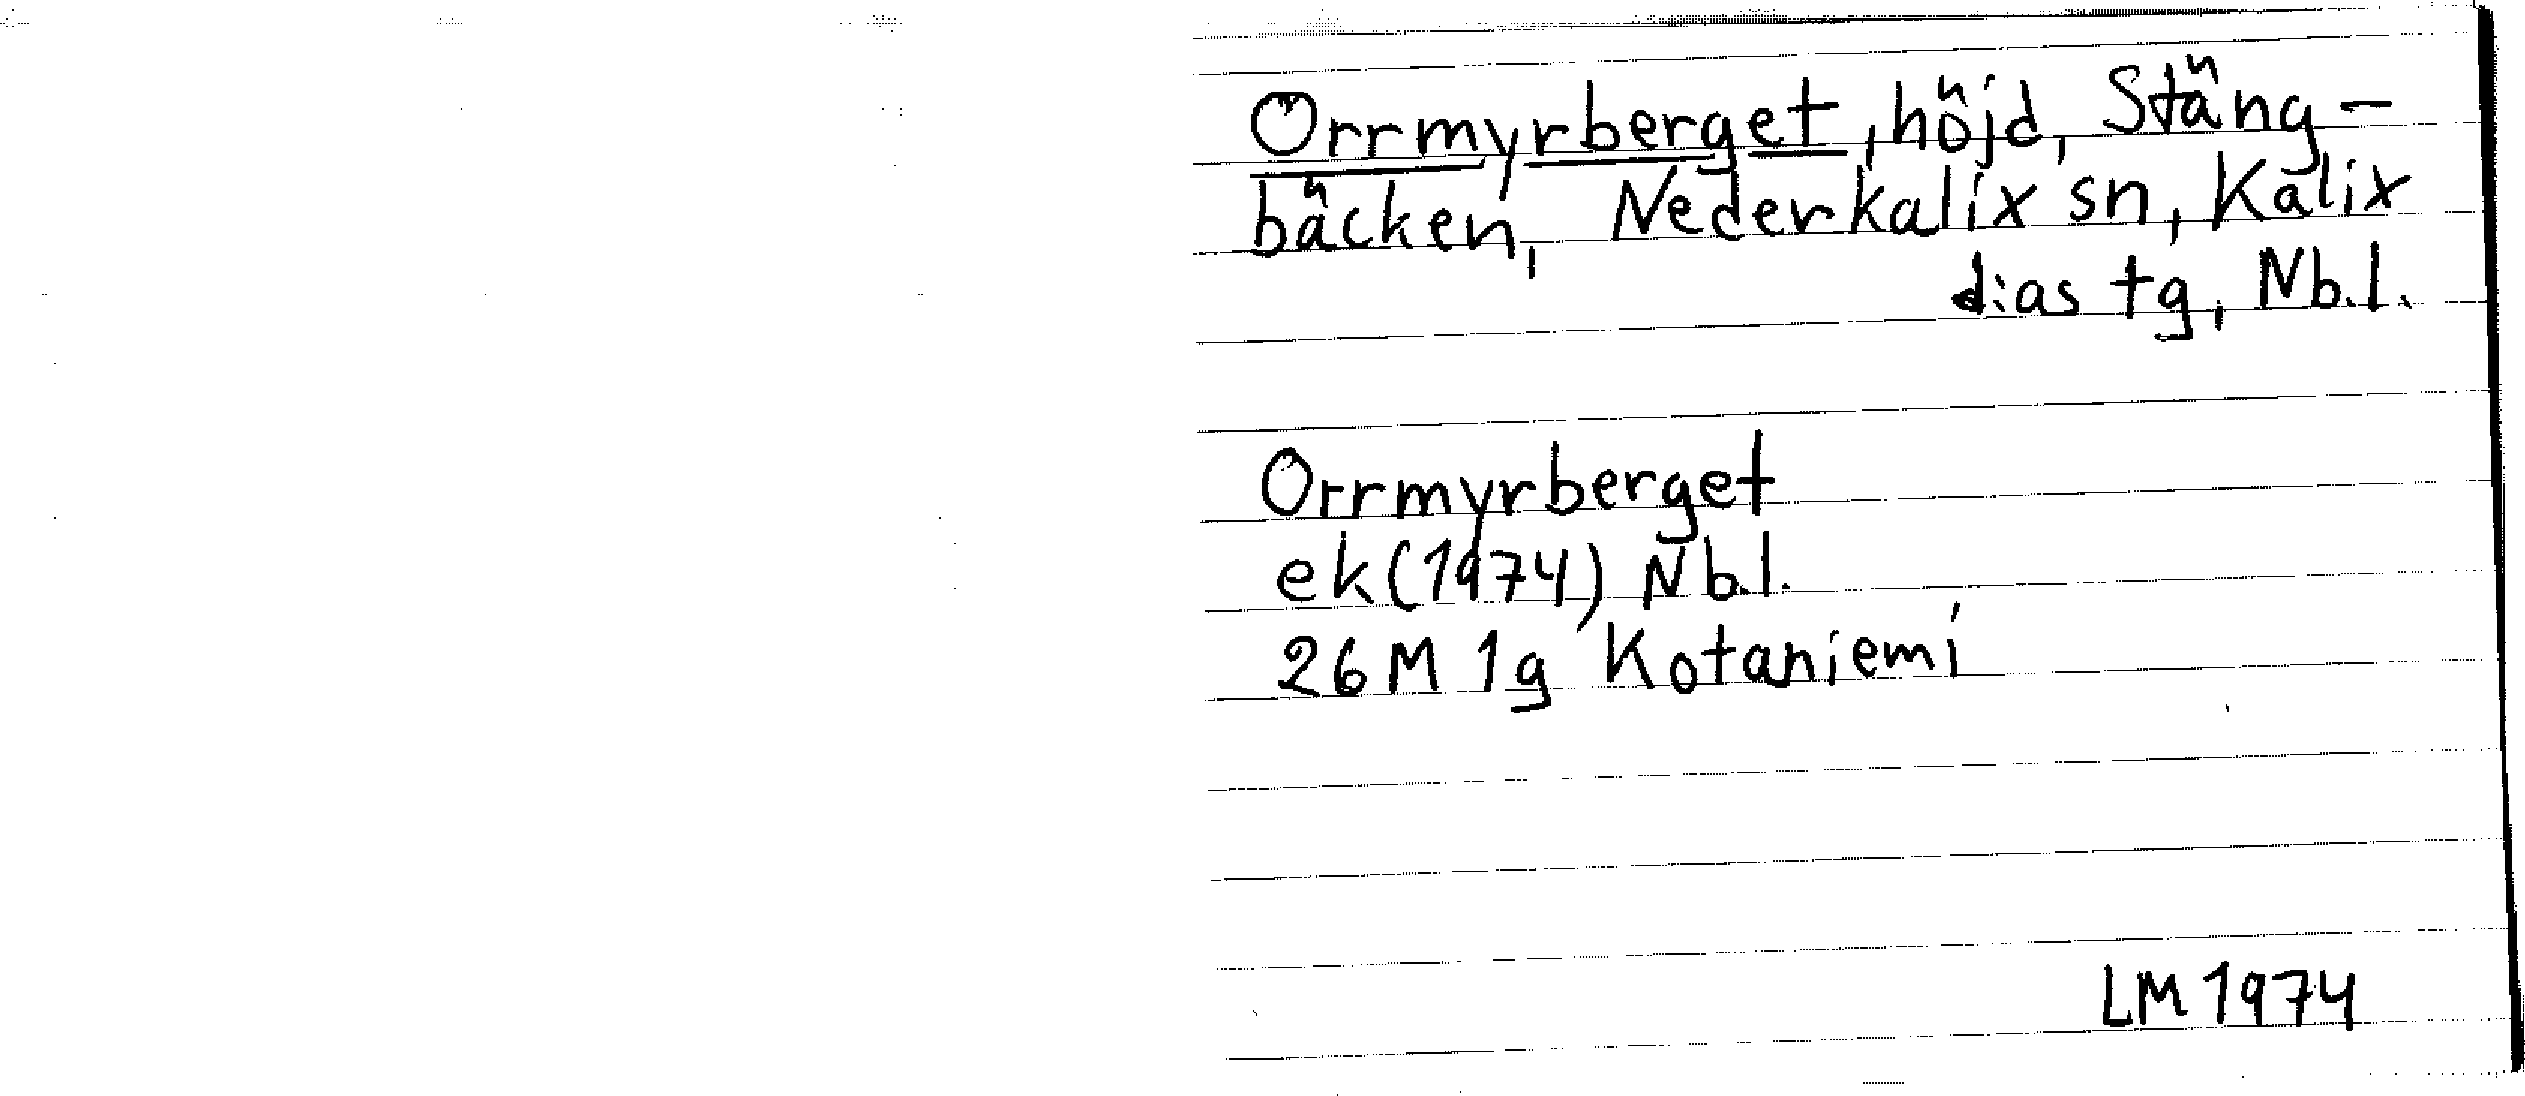 Orrmyrberget, höjd, Stäng-
bäcken, Nederkalix sn, Kalix
dias tg, Nb.l.
Orrmyrberget
ek (1974) Nb.l.
26 M 1g Kotaniemi
LM 1974